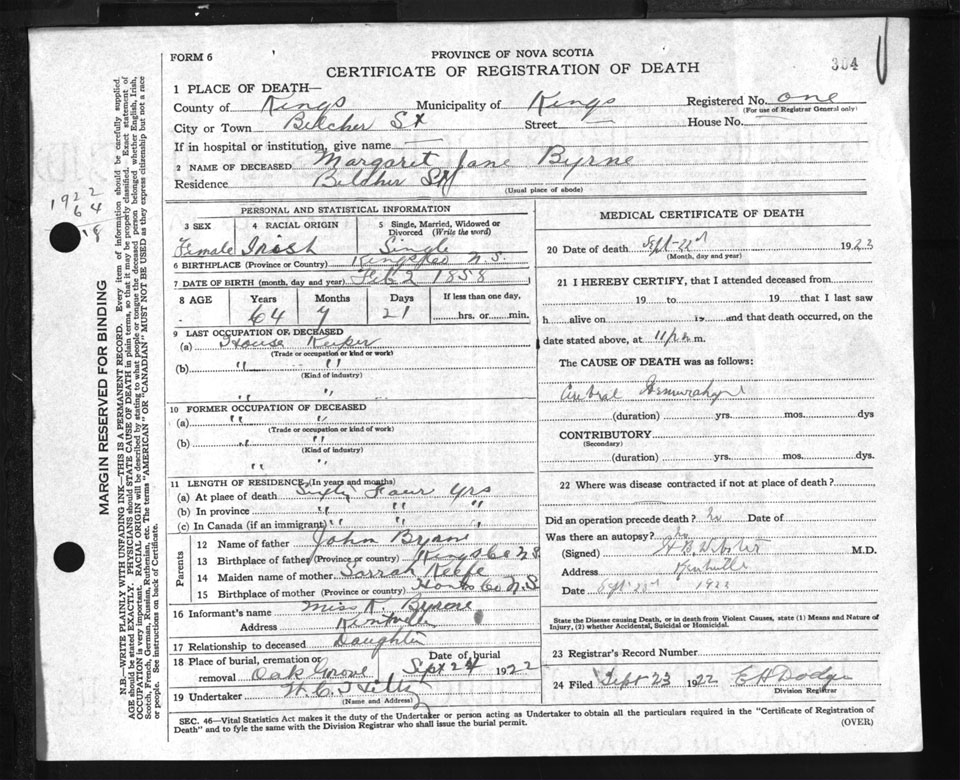 FORM 6
PROVINCE OF NOVA SCOTIA
CERTIFICATE OF REGISTRATION OF DEATH
304
1 PLACE OF DEATH—
County of Kings Municipality of Kings Registered No. one
(For use of Registrar General only)
City or Town Belcher St Street — House No. —
If in hospital or institution, give name —
2 NAME OF DECEASED Margaret Jane Byrne
Residence Belcher St
(Usual place of abode)
PERSONAL AND STATISTICAL INFORMATION
3 SEX 4 RACIAL ORIGIN 5 Single, Married, Widowed or Divorced (Write the word)
Female Irish Single
6 BIRTHPLACE (Province or Country) Kings Co N.S.
7 DATE OF BIRTH (month, day and year) Feb 2 1858
8 AGE Years Months Days If less than one day,
64 7 21 hrs. or min.
9 LAST OCCUPATION OF DECEASED
(a) House Keeper
(Trade or occupation or kind or work)
(b) " "
(Kind of industry)
" "
10 FORMER OCCUPATION OF DECEASED
(a) " "
(Trade or occupation or kind of work)
(b) " "
(Kind of industry)
" "
11 LENGTH OF RESIDENCE (In years and months)
(a) At place of death Sixty Four yrs
(b) In province " " "
(c) In Canada (if an immigrant) " " "
Parents
12 Name of father John Byrne
13 Birthplace of father (Province or country) Kings Co N S
14 Maiden name of mother Sarrah Keefe
15 Birthplace of mother (Province or Country) Hants Co N.S
16 Informant's name Miss K. Byrne
Address Kentville
17 Relationship to deceased Daughter
18 Place of burial, cremation or removal Oak Grove Date of burial Sept 24 1922
19 Undertaker W.C.
(Name and Address)
MEDICAL CERTIFICATE OF DEATH
20 Date of death Sept-22nd 1923
(Month, day and year)
21 I HEREBY CERTIFY, that I attended deceased from
19 to 19 that I last saw
h alive on 19 and that death occurred, on the
date stated above, at 11 p.m.
The CAUSE OF DEATH was as follows:
Cerebral Hemorrhage
(duration) yrs. mos. dys
CONTRIBUTORY
(Secondary)
(duration) yrs. mos. dys.
22 Where was disease contracted if not at place of death?
Did an operation precede death? No Date of
Was there an autopsy? No
(Signed) H B Webster M.D.
Address Kentville
Date Sept 23rd 1922
State the Disease causing Death, or in death from Violent Causes, state (1) Means and Nature of Injury, (2) whether Accidental, Suicidal or Homicidal.
23 Registrar's Record Number
24 Filed Sept 23 1922 E H Dodge
Division Registrar
SEC. 46—Vital Statistics Act makes it the duty of the Undertaker or person acting as Undertaker to obtain all the particulars required in the "Certificate of Registration of
Death" and to fyle the same with the Division Registrar who shall issue the burial permit. (OVER)
1922
64
18
MARGIN RESERVED FOR BINDING
N.B.—WRITE PLAINLY WITH UNFADING INK—THIS IS A PERMANENT RECORD. Every item of information should be carefully supplied.
AGE should be stated EXACTLY. PHYSICIANS should STATE CAUSE OF DEATH in plain terms, so that it may be properly classified. Exact statement of
OCCUPATION is very important. RACIAL ORIGIN will be described by stating to what people or tongue the deceased person belonged whether English, Irish,
Scotch, French, German, Russian, Ruthenian, etc. The terms "AMERICAN" OR "CANADIAN" MUST NOT BE USED as they express citizenship but not a race
or people. See instructions on back of Certificate.